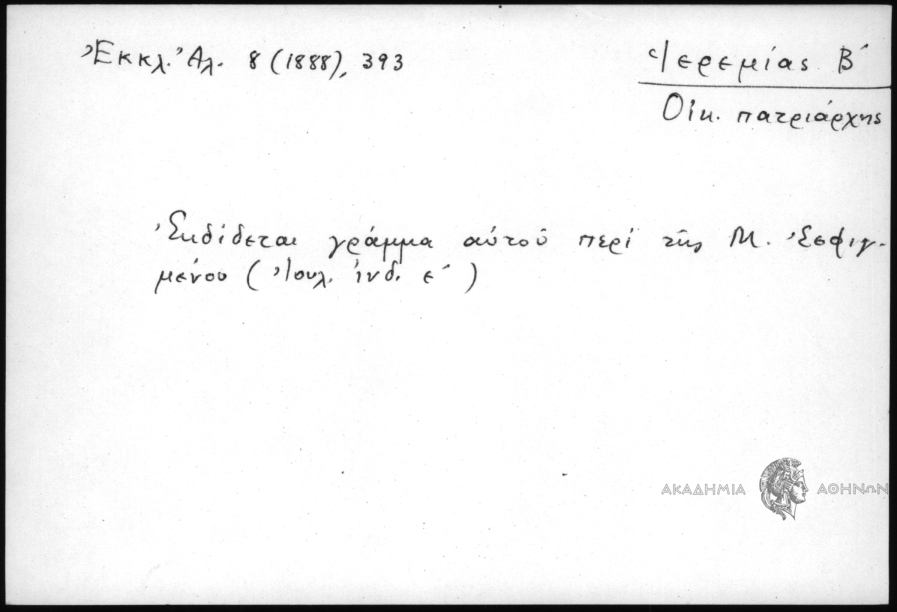 Ἐκκλ. Ἀλ. 8 (1888), 393
Ἱερεμίας Β΄
Οἰκ. πατριάρχης
Ἐκδίδεται γράμμα αὐτοῦ περὶ τῆς Μ. Ἐσφιγ-
μένου (Ἰουλ. ἰνδ. ε΄)
ΑΚΑΔΗΜΙΑ ΑΘΗΝΩΝ